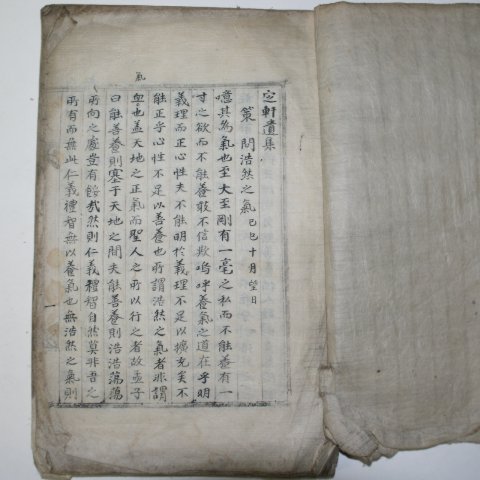 定軒遺集
策 問浩然之氣 己巳十月望日
噫其為氣也至大至剛有一毫之私而不能養有一
寸之欲而不能養敢不信歟嗚呼養氣之道在乎明
義理而正心性夫不能明於義理不足以擴充矣不
能正乎心性不足以善養也所謂浩然之氣者非謂
血也盖天地之正氣而聖人之所以行之者故孟子
曰能善養則塞于天地之間夫能善養則浩浩蕩蕩
所向之處豈有餒哉然則仁義禮智自然莫非吾之
所有而無此仁義禮智無以養氣也無浩然之氣則
氣